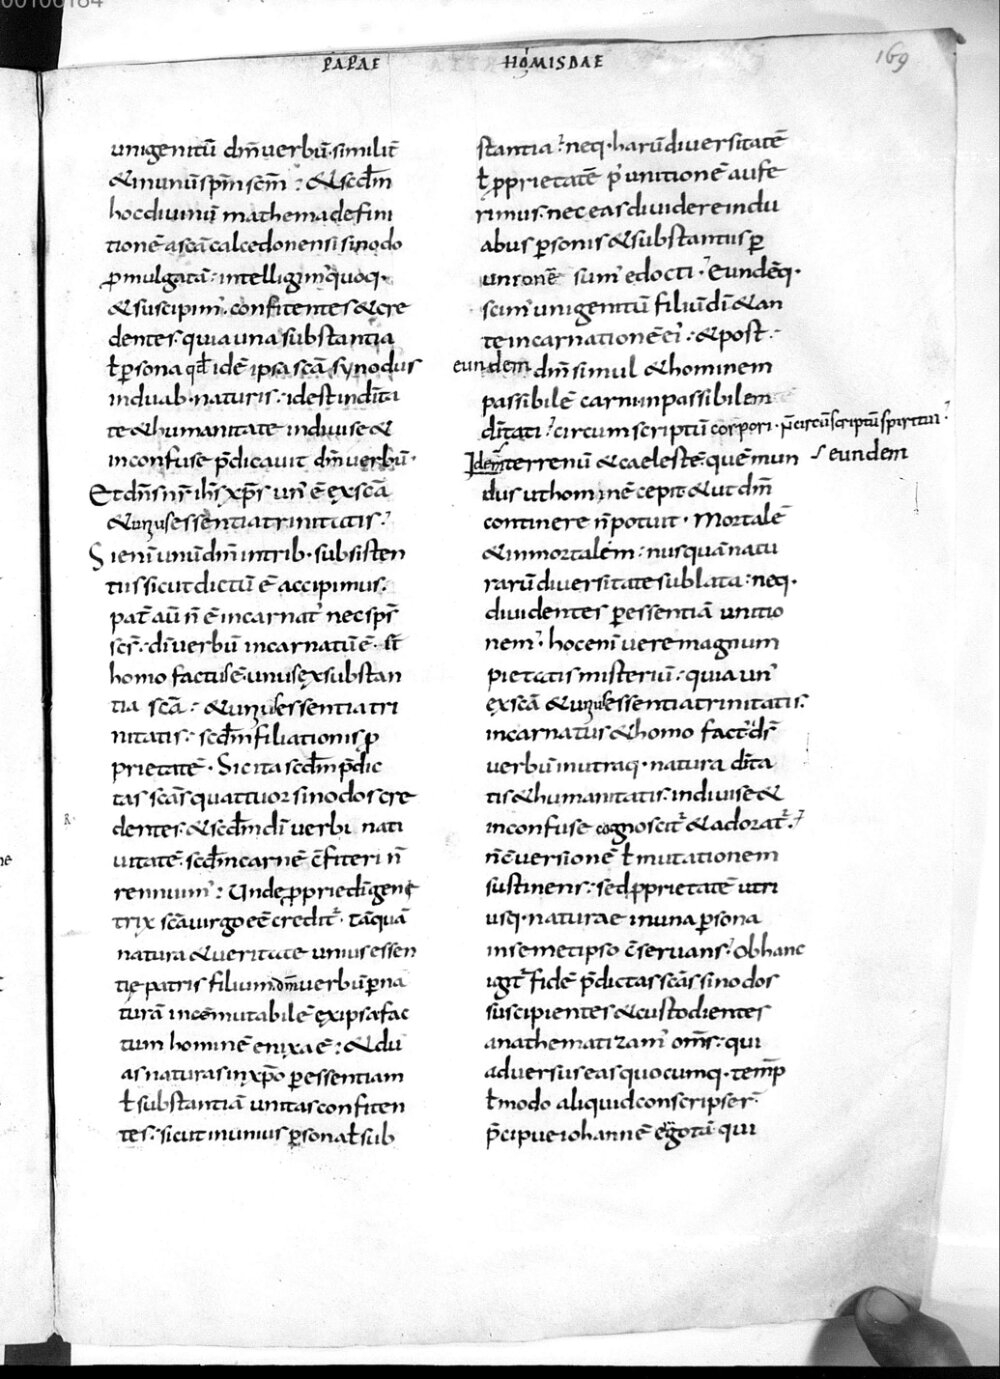 PAPAE HORMISDAE
169
unigenitū dm̄ verbū. similit̄
& in unū sp̄m sc̄m : & scdm̄
hoc divinū mathema defini
tionē a sc̄a calcedonensi sinodo
ꝓmulgatā : intelligim' quoq·
& suscipim'. confitentes & cre
dentes. quia una substantia
ł ꝑsona qđ idē ipsa sc̄a synodus
in duab· naturis. id est in dīta
te & humanitate indivise &
inconfuse p̄dicavit dm̄ verbū·
Et dn̄s nr̄ ih̄s xp̄s un' ē ex sc̄a
& unius essentia trinitatis.
Si enī unū dm̄ in trib· subsisten
tiis sicut dictū ē accipimus.
pat̄ aū n̄ ē incarnat' nec sp̄s
sc̄s. dī verbū incarnatū ē·
homo factus ē. unus ex substan
tia sc̄a : & unius essentia tri
nitatis. scdm̄ filiationis ꝓ
prietatē· Sic ita scdm̄ p̄dic
tas sc̄as quattuor sinodos cre
dentes. & scdm̄ dī verbi nati
vitatē. scdm̄ carnē c̄fiteri n̄
rennuim' : Unde ꝓprie dī gene
trix sc̄a virgo eē credit̄· tāquā
natura & veritate unius essen
tie patris filium dm̄ verbū ꝑ na
turā incōmutabilē ex ipsa fac
tum hominē enixa ē : & du
as naturas in xp̄o ꝑ essentiam
ł substantiā unitas confiten
tes. sicut in unius ꝑsona ł sub
stantia : neq· harū diversitatē
ł ꝓprietatē p' unitionē aufe
rimus. nec eas dividere in du
abus ꝑsonis & substantiis ꝑ
unionē sum' edocti· Eundēq·
scim' unigenitū filiū dī & an
te incarnationē ei' : & post·
eundem dm̄ simul & hominem
passibilē carni inpassibilem
dītati : circumscriptū corpori· n̄ circūscriptū spiritui :
Idem terrenū & caelestē. quē mun eundem
dus ut hominē cepit & ut dm̄
continere n̄ potuit· Mortalē
& inmortalem : nusquā natu
rarū diversitate sublata : neq·
dividentes ꝑ essentiā unitio
nem : hoc enī vere magnum
pietatis misteriū : quia un'
ex sc̄a & unius essentia trinitatis.
incarnatus & homo fact' d̄s
verbū in utraq· natura dīta
tis & humanitatis. indivise &
inconfuse cognoscit̄ & adorat̄.
n̄ c̄versionē ł mutationem
sustinens : sed ꝓprietatē utri
usq· naturae in una ꝑsona
in semetipso c̄servans : Ob hanc
igit̄ fidē p̄dictas sc̄as sinodos
suscipientes & custodientes
anathematizam' om̄s : qui
adversus eas quocumq· temp̄
ł modo aliquid conscripser̄
p̄cipue iohannē egotā· qui